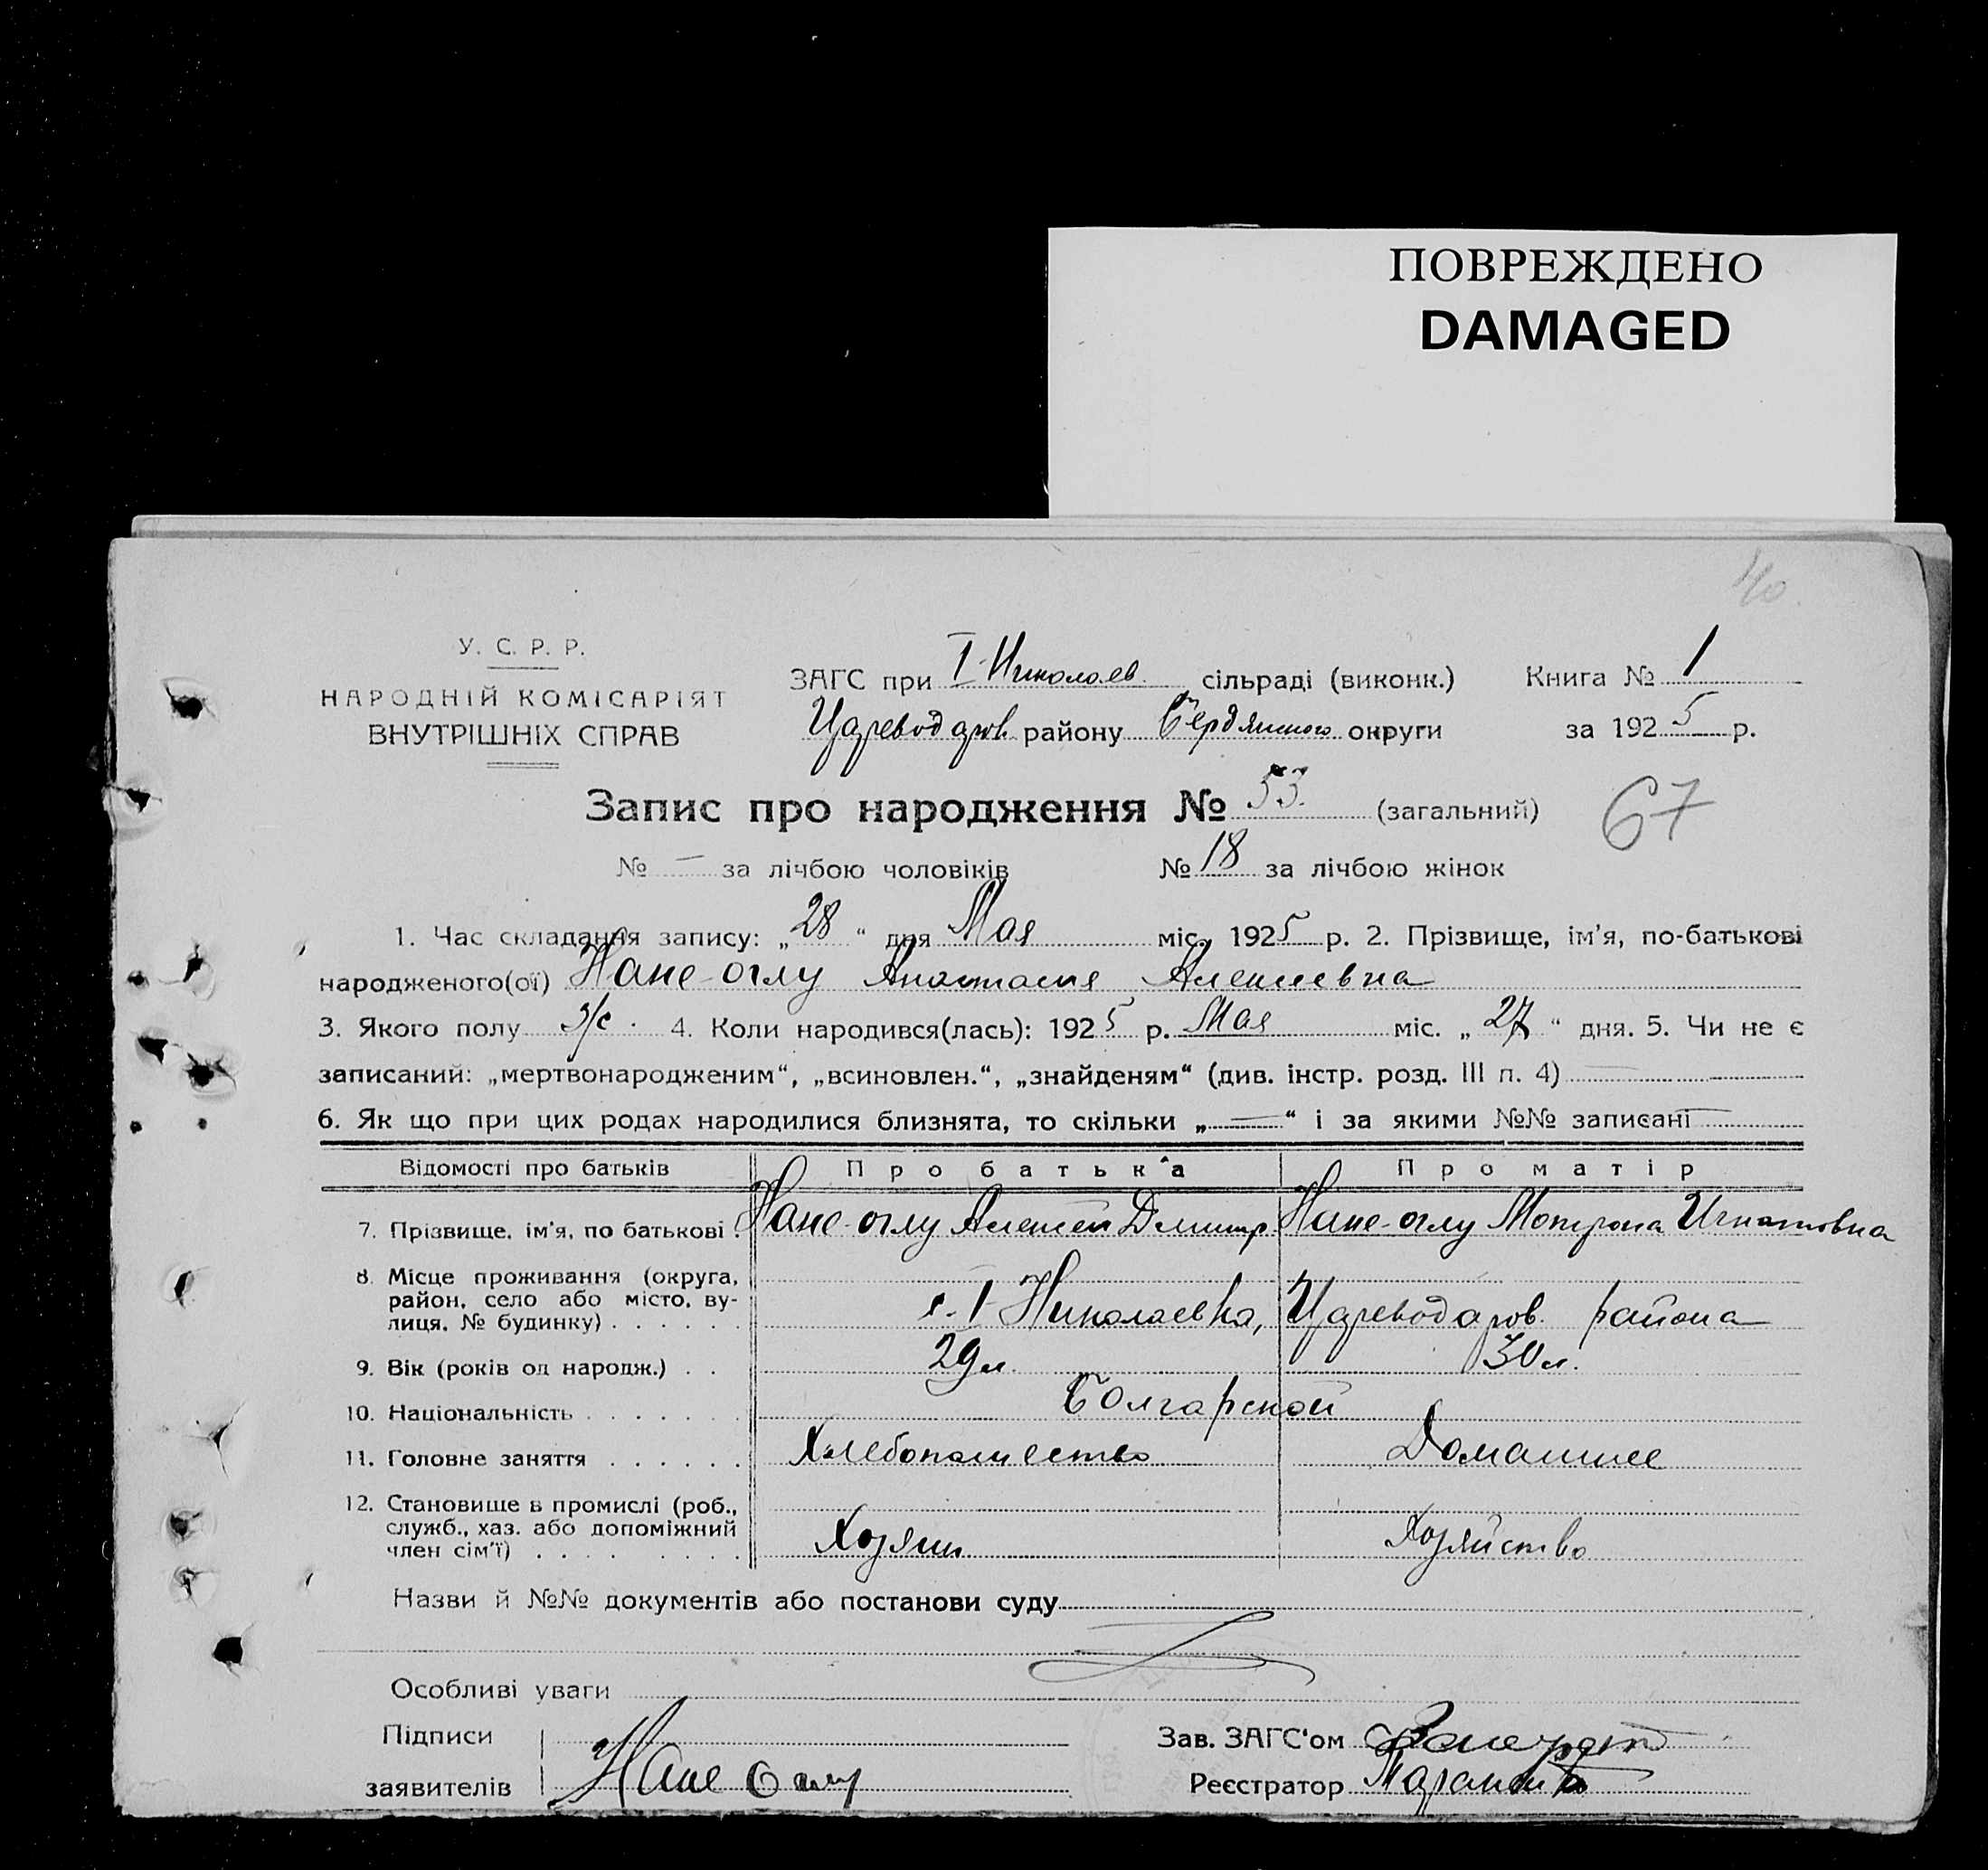 ПОВРЕЖДЕНО
DAMAGED
140.
У. С. Р. Р.
НАРОДНІЙ КОМІСАРІЯТ
ВНУТРІШНІХ СПРАВ
ЗАГС при I-Николаев. сільраді (виконк.) Книга № 1
Цареводаров. району Бердянского округи за 1925 р.
Запис про народження № 53. (загальний) 67
№ — за лічбою чоловіків № 18 за лічбою жінок
1. Час складання запису: „28“ дня Мая міс. 1925 р. 2. Прізвище, ім'я, по-батькові
народженого(ої) Нане-оглу Анастасия Алексеевна
3. Якого полу ж. 4. Коли народився(лась): 1925 р. Мая міс. „27“ дня. 5. Чи не є
записаний: „мертвонародженим“, „всиновлен.“, „знайденям“ (див. інстр. розд. III п. 4) —
6. Як що при цих родах народилися близнята, то скільки „—“ і за якими №№ записані —
Відомості про батьків Про батька Про матір
7. Прізвище, ім'я, по батькові . Нане-оглу Алексей Дмитр. Нане-оглу Мотрона Игнатовна
8. Місце проживання (округа,
район, село або місто, ву-
лиця, № будинку) . . . . . . с. I Николаевка, Цареводаров. района
9. Вік (років од народж.) . . 29 л. 30 л.
10. Національність . . . . . . . Болгарской
11. Головне заняття . . . . . . Хлебопашество Домашнее
12. Становище в промислі (роб.,
служб., хаз. або допоміжний
член сім'ї) . . . . . . . . . Хозяин Хозяйство
Назви й №№ документів або постанови суду
Особливі уваги
Підписи Зав. ЗАГС'ом
заявителів Нане Оглу Реєстратор